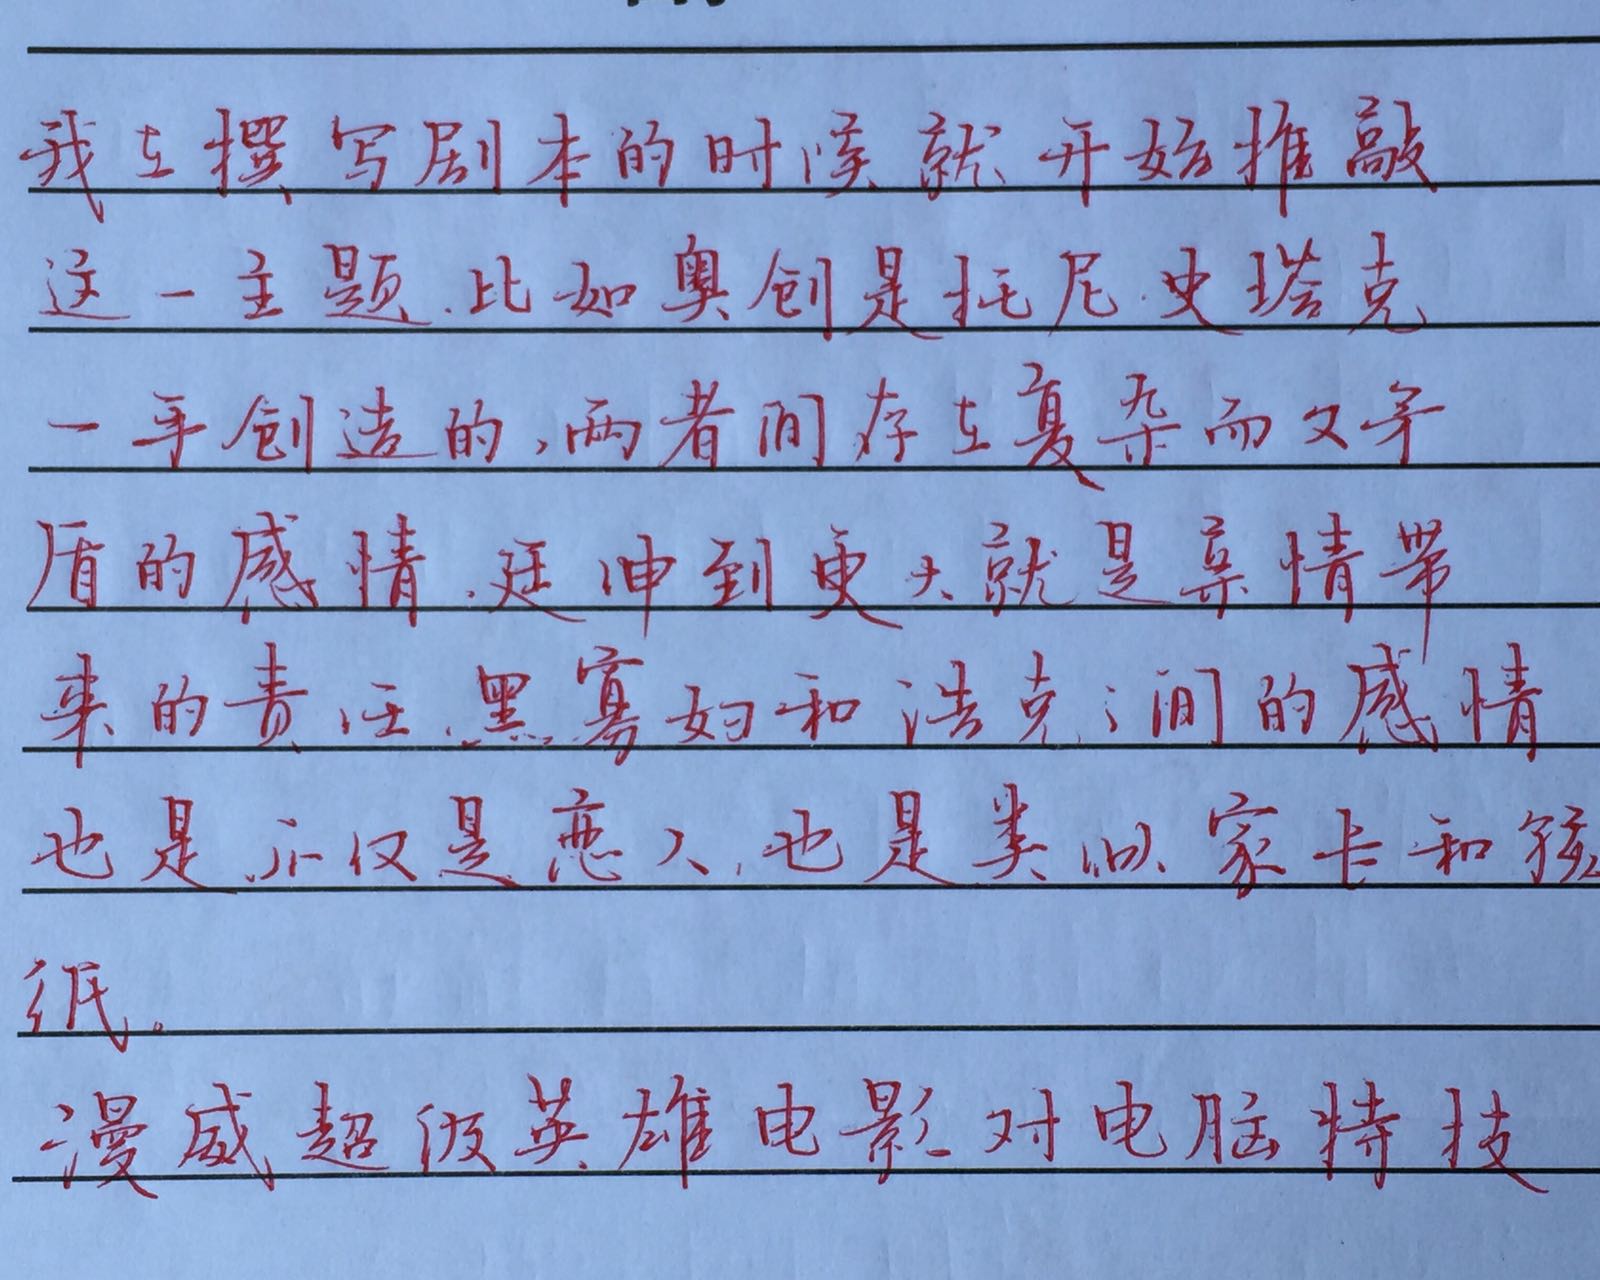 我在撰写剧本的时候就开始推敲
这一主题.比如奥创是托尼.史塔克
一手创造的,两者间存在复杂而又矛
盾的感情.延伸到更大就是亲情带
来的责任.黑寡妇和浩克之间的感情
也是不仅是恋人,也是类似家长和孩
纸。
漫威超级英雄电影对电脑特技